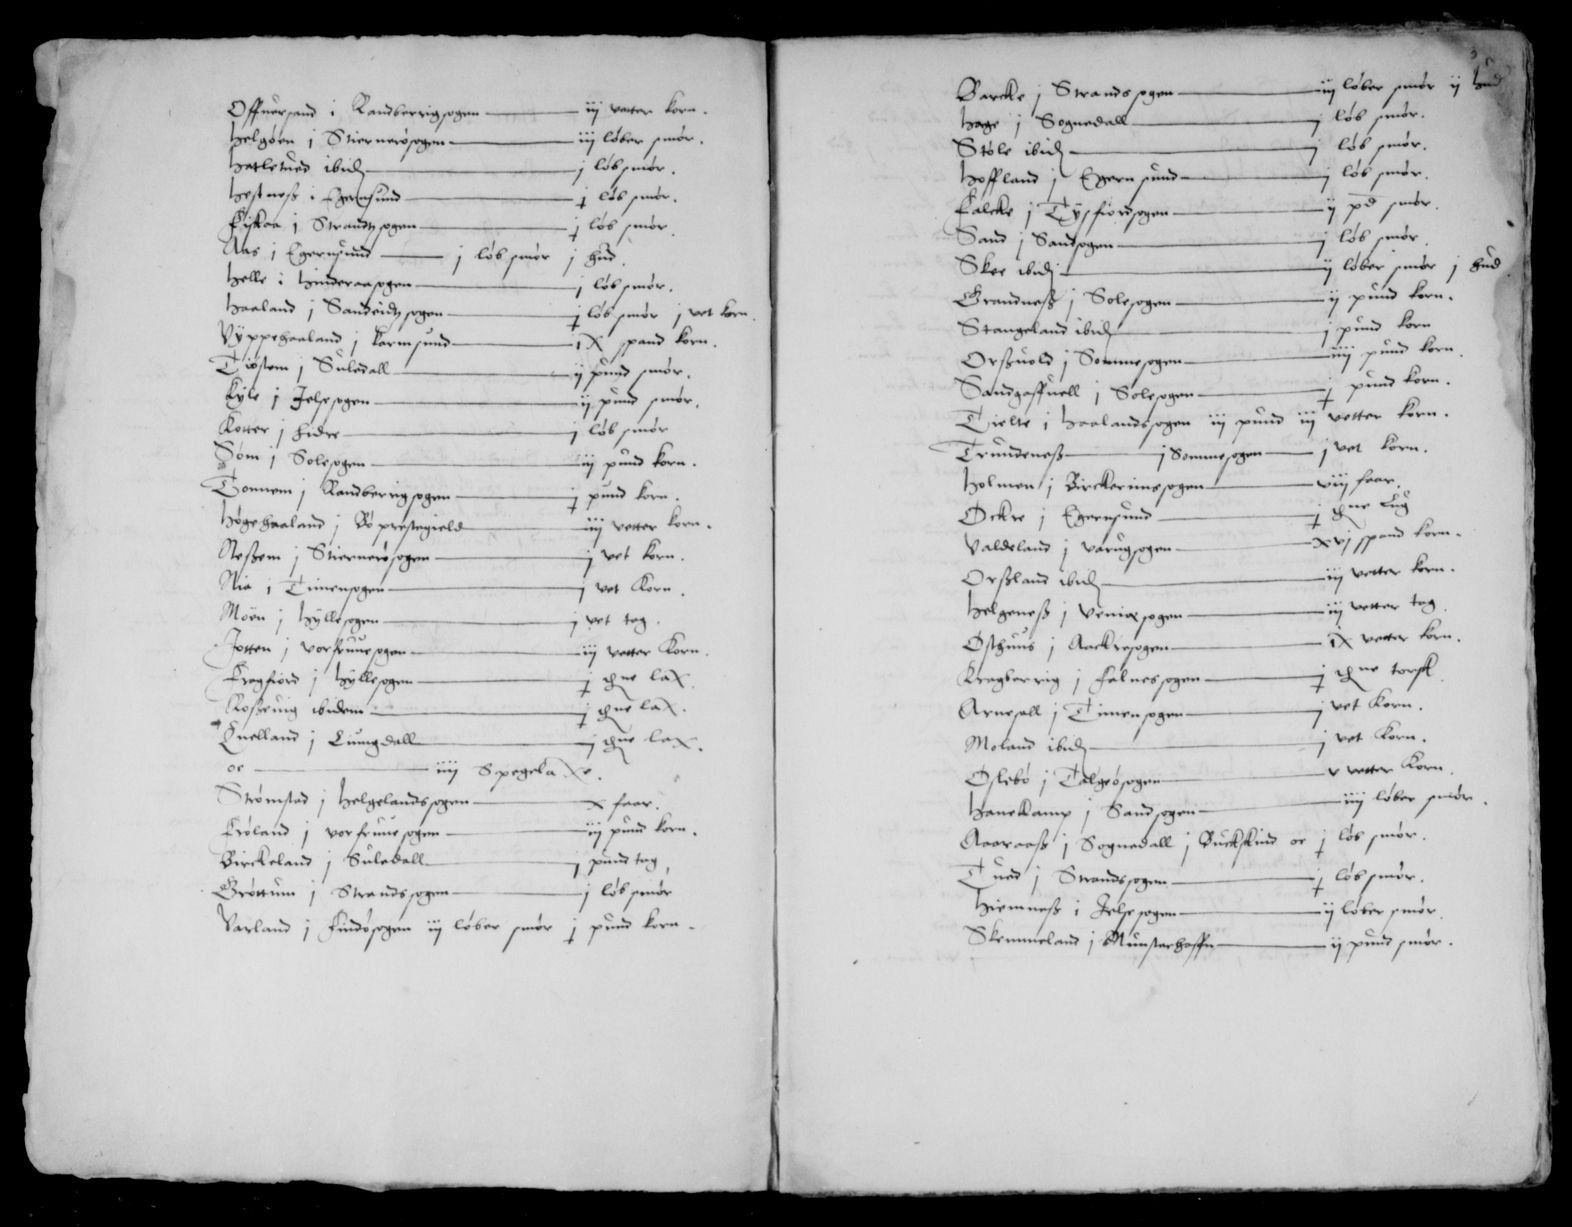 Offuersand i Randberrigsogen iij vetter korn.
Helgøen j Stiernerøsogen iij løber smør.
Hatletued ibid j løb smør.
Hestneß i Egersund j løb smør.
Fiskaa j Strandtzsogen j løb smør.
Aas j Egernsund j løb smør j hud.
Helle i Hinderaasogen j løb smør.
Haaland j Sandeidtzsogen j løb smør j vet korn.
Vÿppehaaland j Karmsund iX spand korn.
Tiøstem j Suledall ij pund smør.
Kÿle j Jelsesogen ij pund smør.
Kotter j Hidre j løb smør
Søm j Solesogen iij pund korn.
Tonnem j Randberrigsogen j pund korn.
Høgehaaland j Bø prestegield iij vetter korn.
Neßem j Stiernerøsogen j vet korn.
Nia j Timensogen j vet Korn.
Møen j Hÿllesogen j vet teg.
Jotten j vorfruuesogen iij vetter Korn.
Fragfiord j Hÿllesogen j thne laX.
Roßeuig ibidem j thne laX.
Quelland j Liungdall j thne lax.
oc iiij SpegelaXe.
Strømstad j Helgelandssogen x faar.
Frøland j vorfruuesogen iij pund korn.
Birckeland j Suledall j pund teg
Grøttum j Strandssogen j løb smør
Varland j Findøsogen iij løber smør j pund korn.
3
Barcke j Strandssogen iij løber smør ij hud
Hage j Sognedall j løb smør.
Støle ibid j løb smør.
Hoffland j Egernsund j løb smør.
Falcke j Tÿsfiordsogen ij pd smør.
Sand j Sandsogen j løb smør.
Skee ibid ij løber smør j hud
Grandneß j Solesogen ij pund korn.
Stangeland ibid j pund korn
Orßuold j Sommesogen iiij pund korn.
Sandzaffuell j Solesogen j pund korn.
Tielte i Haalandssogen iij pund iij vetter korn.
Trundeneß j Sommesogen j vet korn.
Holmen j Birckerimesogen viij faar.
Ockre j Egernsund j thne
Valdeland j varugsogen xvj spand korn.
Orßland ibid iij vetter korn.
Helgeneß j vvniøsogen iij vetter teg
Østhuus j Aackresogen iX vetter korn.
Kragberrig j Falnessogen j thne torsk
Aruesall j Timensogen j vet Korn.
Moland ibid j vet Korn.
Oslebø j Talgøsogen v vetter Korn.
HaneKamp j Sandsogen iiij løber smør.
Aaaraaß j Sognedall j Buckskind oc j løb smør.
Tued j Strandssogen j løb smør.
Hiemneß i Jelsesogen ij løber smør.
Skemmeland j Munsterhaffn ij pund smør.